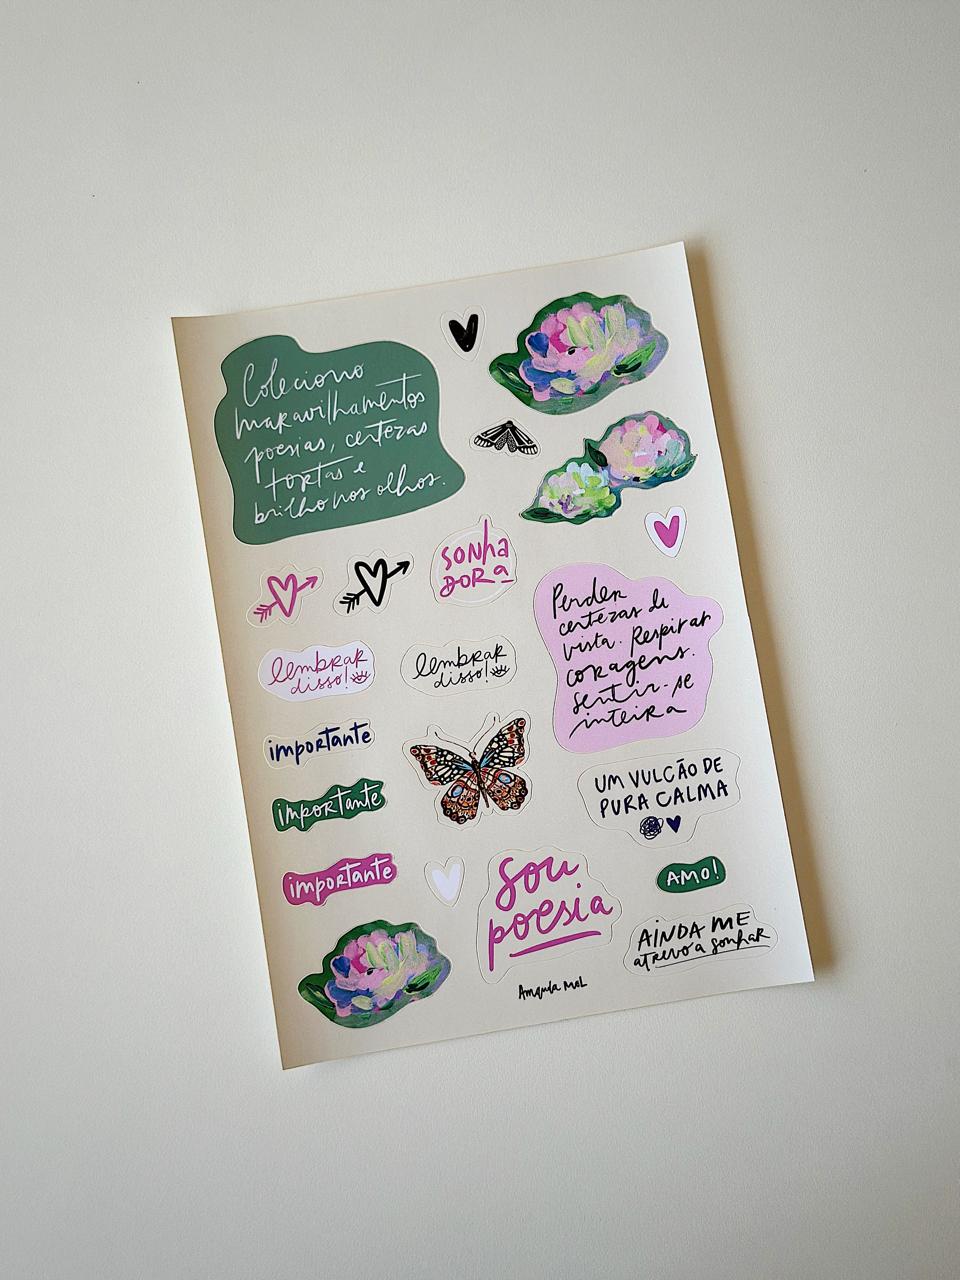 Coleciono
maravilhamentos
poesias, certezas
tortas e
brilho nos olhos.
sonha
DORA
Perder
certezas de
vista. Respirar
coragens.
sentir-se
inteira
lembrar
disso!
lembrar
disso!
importante
importante
importante
UM VULCÃO DE
PURA CALMA
sou
poesia
AMO!
AINDA ME
atrevo a sonhar
Amanda MOL